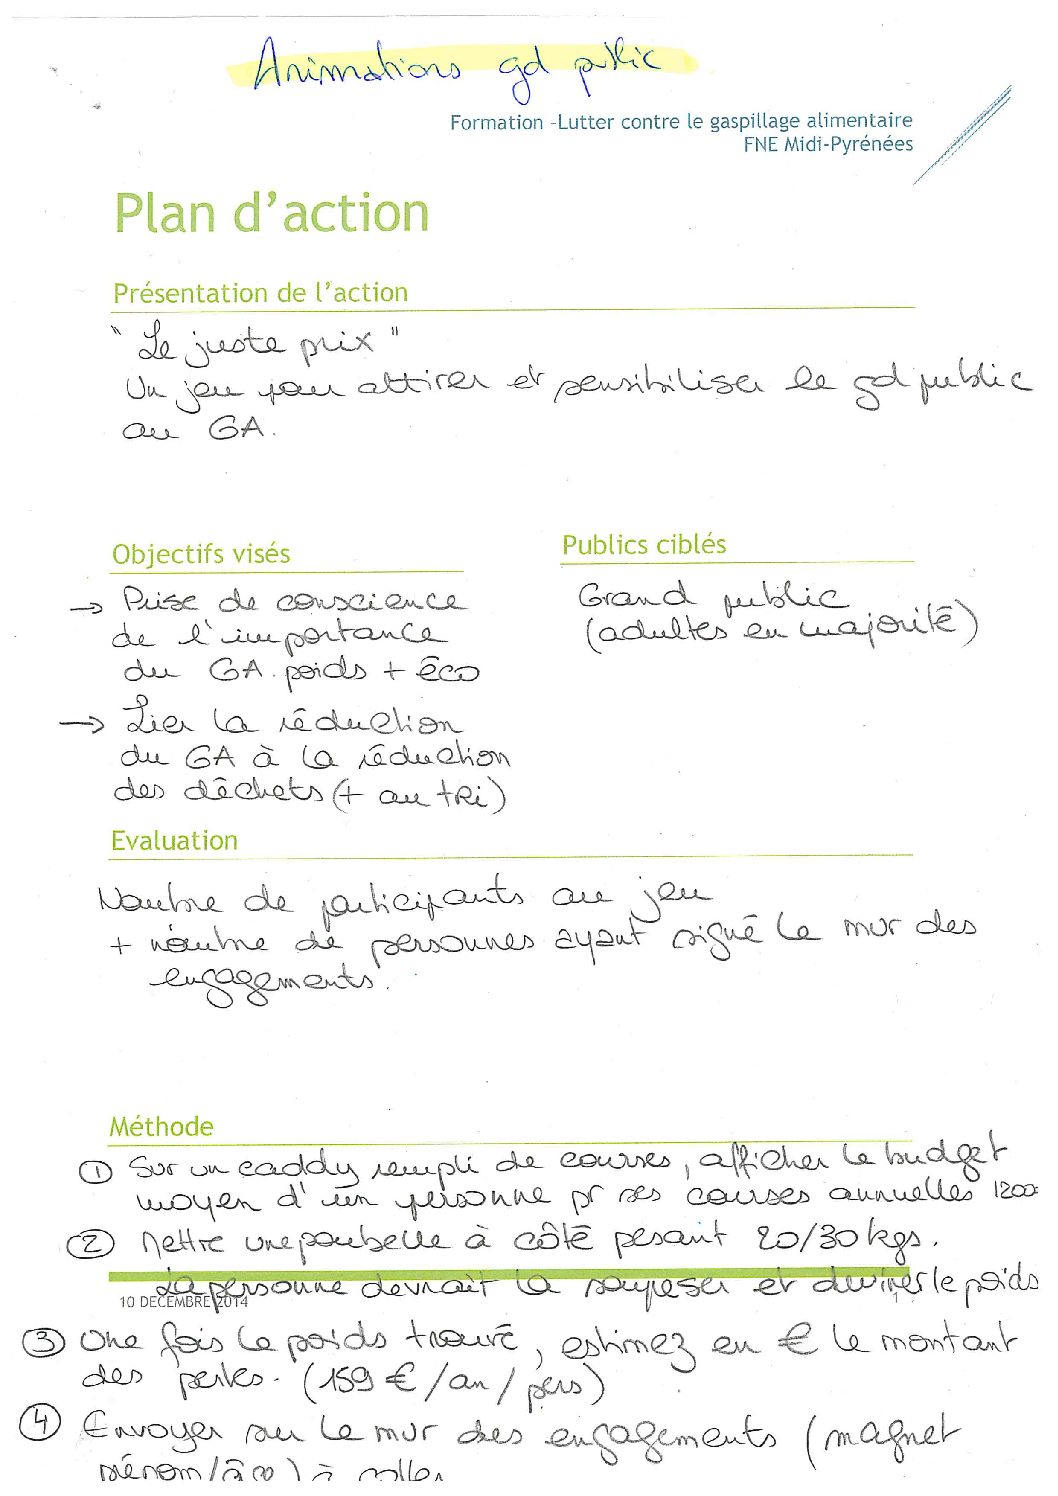 Animations gd public
Formation -Lutter contre le gaspillage alimentaire
FNE Midi-Pyrénées
Plan d'action
Présentation de l'action
"Le juste prix"
Un jeu pour attirer et sensibiliser le gd public
au GA.
Objectifs visés
→ Prise de conscience
de l'importance
du GA. poids + éco
→ Lier la réduction
du GA à la réduction
des déchets (+ au tri)
Publics ciblés
Grand public
(adultes en majorité)
Evaluation
Nombre de participants au jeu
+ nombre de personnes ayant signé le mur des
engagements.
Méthode
① Sur un caddy rempli de courses, afficher le budget
moyen d'un personne pr ses courses annuelles 1200
② Mettre une poubelle à côté pesant 20/30 kgs.
La personne devrait la soupeser et deviner le poids
10 DECEMBRE 2014
1
③ Une fois le poids trouvé, estimez en € le montant
des pertes. (159 €/an/pers)
④ Envoyer sur le mur des engagements (magnet
prénom/âge) à coller